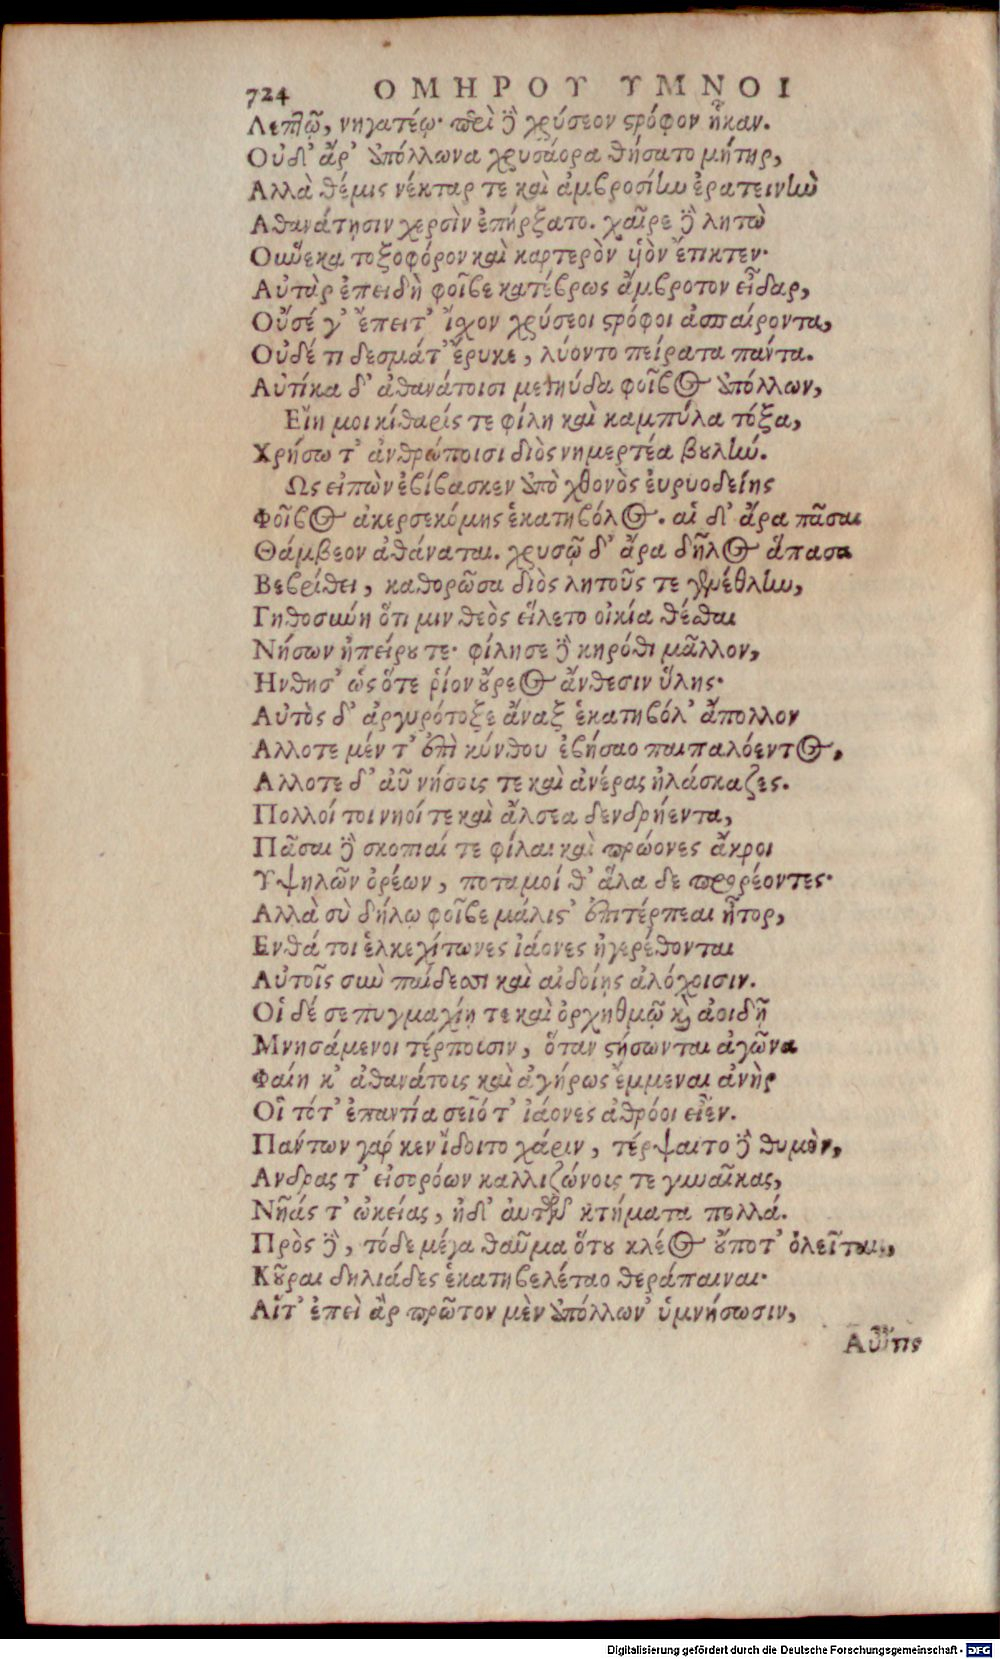 724 ΟΜΗΡΟΥ ΥΜΝΟΙ
Λεπτῷ, νηγατέῳ· περὶ δὲ χρύσεον στρόφον ἧκαν.
Οὐδ' ἄρ' Ἀπόλλωνα χρυσάορα θήσατο μήτηρ,
Αλλὰ θέμις νέκταρ τε καὶ ἀμβροσίην ἐρατεινὴν
Αθανάτησιν χερσὶν ἐπήρξατο. χαῖρε δὲ λητὼ
Οὕνεκα τοξοφόρον καὶ καρτερὸν υἱὸν ἔτικτεν·
Αὐτὰρ ἐπειδὴ φοῖβε κατέβρως ἄμβροτον εἶδαρ,
Οὔσέ γ' ἔπειτ' ἴχον χρύσεοι στρόφοι ἀσπαίροντα,
Οὐδέ τι δεσμάτ' ἔρυκε, λύοντο πείρατα πάντα.
Αὐτίκα δ' ἀθανάτοισι μετηύδα φοῖβος Ἀπόλλων,
Εἴη μοι κίθαρίς τε φίλη καὶ καμπύλα τόξα,
Χρήσω τ' ἀνθρώποισι διὸς νημερτέα βουλήν.
Ως εἰπὼν ἐβίβασκεν ἀπὸ χθονὸς εὐρυοδείης
Φοῖβος ἀκερσεκόμης ἑκατηβόλος. αἱ δ' ἄρα πᾶσαι
Θάμβεον ἀθάναται. χρυσῷ δ' ἄρα δῆλος ἅπασα
Βεβρίθει, καθορῶσα διὸς λητοῦς τε γενέθλην,
Γηθοσύνη ὅτι μιν θεὸς εἵλετο οἰκία θέσθαι
Νήσων ἠπείρου τε· φίλησε δὲ κηρόθι μᾶλλον,
Ηνθησ' ὡς ὅτε ῥίον οὔρεος ἄνθεσιν ὕλης·
Αὐτὸς δ' ἀργυρότοξε ἄναξ ἑκατηβόλ' ἄπολλον
Αλλοτε μέν τ' ἐπὶ κύνθου ἐβήσαο παιπαλόεντος,
Αλλοτε δ' αὖ νήσοις τε καὶ ἀνέρας ἠλάσκαζες.
Πολλοί τοι νηοί τε καὶ ἄλσεα δενδρήεντα,
Πᾶσαι δὲ σκοπιαί τε φίλαι καὶ πρώονες ἄκροι
Υψηλῶν ὀρέων, ποταμοί θ' ἅλα δε προρέοντες·
Αλλὰ σὺ δήλῳ φοῖβε μάλιστ' ἐπιτέρπεαι ἦτορ,
Ενθά τοι ἑλκεχίτωνες ἰάονες ἠγερέθονται
Αὐτοῖς σὺν παίδεσσι καὶ αἰδοίῃς ἀλόχοισιν.
Οἱ δέ σε πυγμαχίῃ τε καὶ ὀρχηθμῷ καὶ ἀοιδῇ
Μνησάμενοι τέρποισιν, ὅταν στήσωνται ἀγῶνα
Φαίη κ' ἀθανάτοις καὶ ἀγήρως ἔμμεναι ἀνὴρ
Οἳ τότ' ἐπαντία σεῖό τ' ἰάονες ἀθρόοι εἶεν.
Πάντων γάρ κεν ἴδοιτο χάριν, τέρψαιτο δὲ θυμὸν,
Ανδρας τ' εἰσορόων καλλιζώνοις τε γυναῖκας,
Νῆάς τ' ὠκείας, ἠδ' αὐτῶν κτήματα πολλά.
Πρὸς δὲ, τόδε μέγα θαῦμα ὅτου κλέος οὔποτ' ὀλεῖται,
Κοῦραι δηλιάδες ἑκατηβελέταο θεράπαιναι·
Αἵτ' ἐπεὶ ἂρ πρῶτον μὲν Ἀπόλλων' ὑμνήσωσιν,
Αὖτις
Digitalisierung gefördert durch die Deutsche Forschungsgemeinschaft - DFG